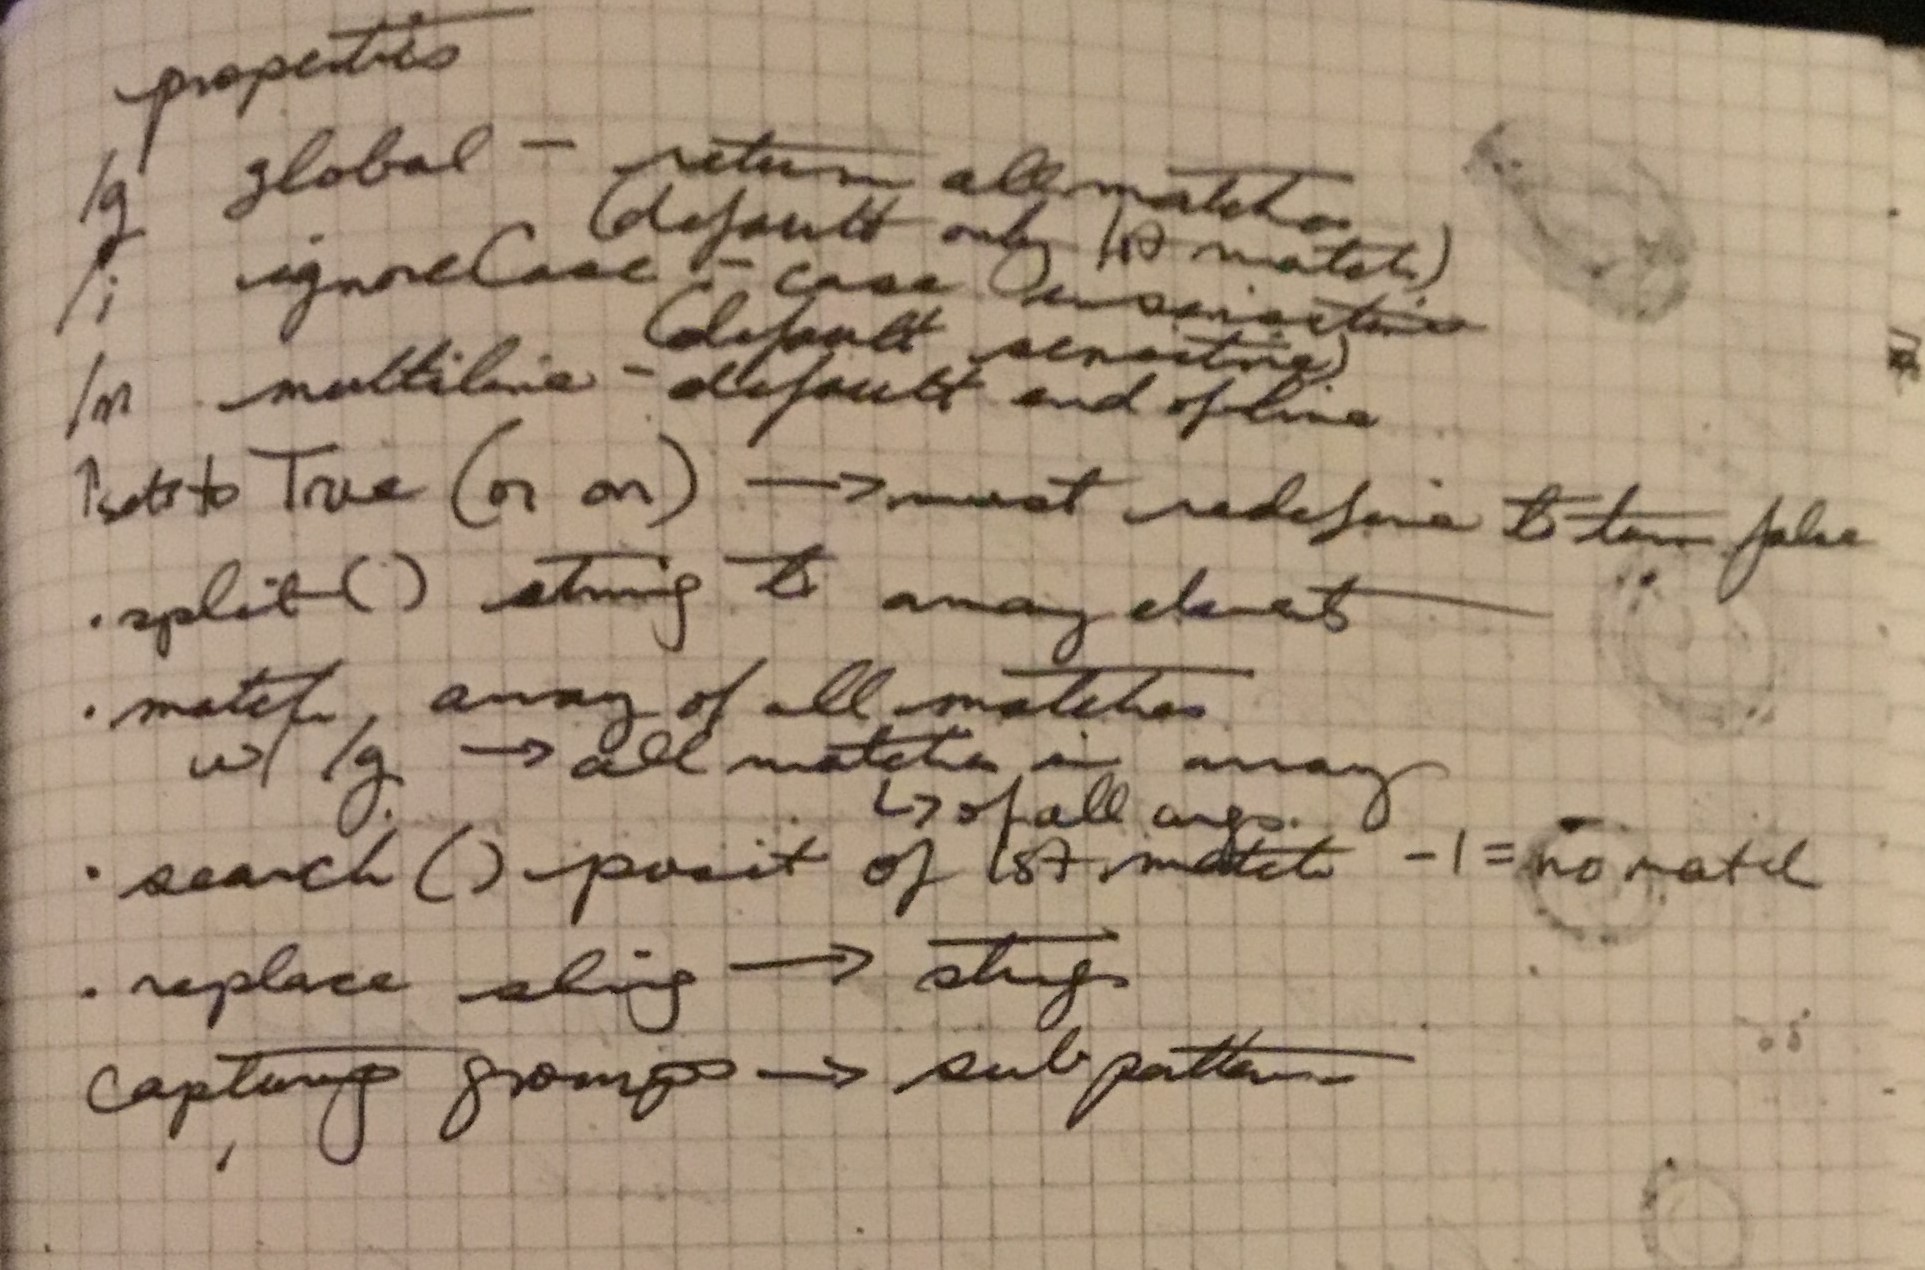 properties
/g global - return all matches
(default only 1st match)
/i ignoreCase - case insensitive
(default sensitive)
/m multiline - default end of line
↑ sets to True (or on) → must redefine to turn false
.split() string to array elements
.match, array of all matches
w/ /g → all matches in array
↳ of all args.
.search() posit of 1st match -1 = no match
.replace string → string
capturing groups → sub patterns